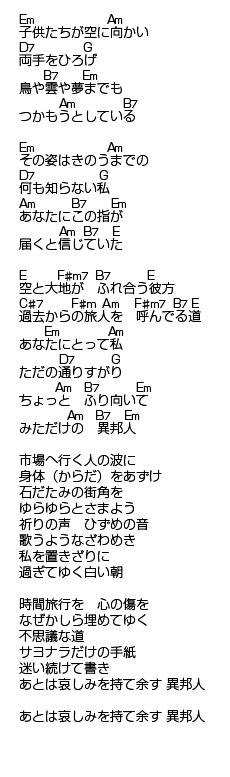 Em Am
子供たちが空に向かい
D7 G
両手をひろげ
B7 Em
鳥や雲や夢までも
Am B7
つかもうとしている
Em Am
その姿はきのうまでの
D7 G
何も知らない私
Am B7 Em
あなたにこの指が
Am B7 E
届くと信じていた
E F#m7 B7 E
空と大地が ふれ合う彼方
C#7 F#m Am F#m7 B7 E
過去からの旅人を 呼んでる道
Em Am
あなたにとって私
D7 G
ただの通りすがり
Am B7 Em
ちょっと ふり向いて
Am B7 Em
みただけの 異邦人
市場へ行く人の波に
身体（からだ）をあずけ
石だたみの街角を
ゆらゆらとさまよう
祈りの声 ひずめの音
歌うようなざわめき
私を置きざりに
過ぎてゆく白い朝
時間旅行を 心の傷を
なぜかしら埋めてゆく
不思議な道
サヨナラだけの手紙
迷い続けて書き
あとは哀しみを持て余す 異邦人
あとは哀しみを持て余す 異邦人